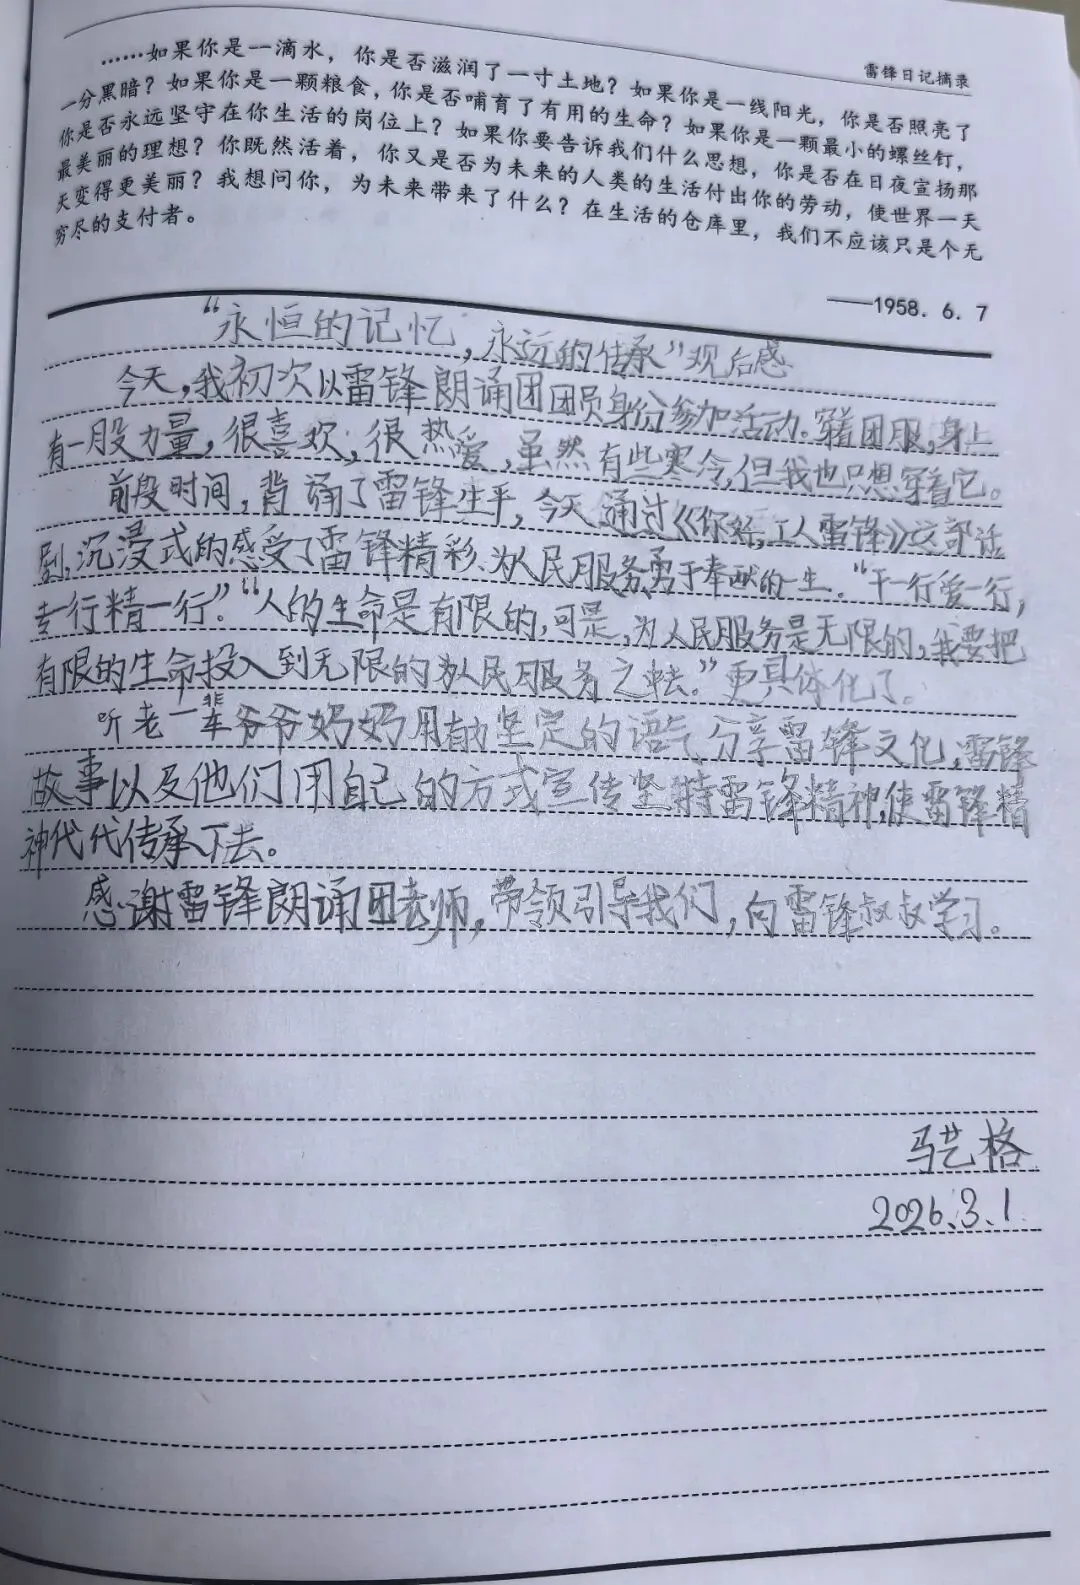 雷锋日记摘录
……如果你是一滴水，你是否滋润了一寸土地？如果你是一线阳光，你是否照亮了
一分黑暗？如果你是一颗粮食，你是否哺育了有用的生命？如果你是一颗最小的螺丝钉，
你是否永远坚守在你生活的岗位上？如果你要告诉我们什么思想，你是否在日夜宣扬那
最美丽的理想？你既然活着，你又是否为未来的人类的生活付出你的劳动，使世界一天
天变得更美丽？我想问你，为未来带来了什么？在生活的仓库里，我们不应该只是个无
穷尽的支付者。
——1958.6.7
“永恒的记忆，永远的传承”观后感
今天，我初次以雷锋朗诵团团员身份参加活动。穿着团服，身上
有一股力量，很喜欢，很热爱，虽然有些寒冷，但我也只想穿着它。
前段时间，背诵了雷锋生平，今天通过《你好，工人雷锋》这部话
剧，沉浸式的感受了雷锋精彩、为人民服务勇于奉献的一生。“干一行爱一行，
专一行精一行。”“人的生命是有限的，可是，为人民服务是无限的，我要把
有限的生命投入到无限的为人民服务之中去。”更具体化了。
听老一辈爷爷妈妈用坚定的语气分享雷锋文化，雷锋
故事以及他们用自己的方式宣传坚持雷锋精神，使雷锋精
神代代传承下去。
感谢雷锋朗诵团老师，带领引导我们，向雷锋叔叔学习。
马艺格
2026.3.1